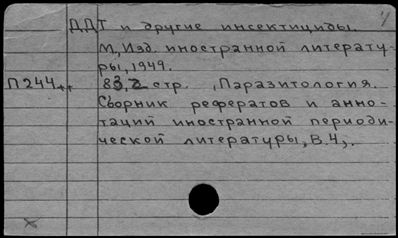 ДДТ и другие инсектициды.
М., Изд. иностранной литерату-
ры, 1949.
П244 83, 2 стр. , Паразитология.
Сборник рефератов и анно-
таций иностранной периоди-
ческой литературы, В.4,.